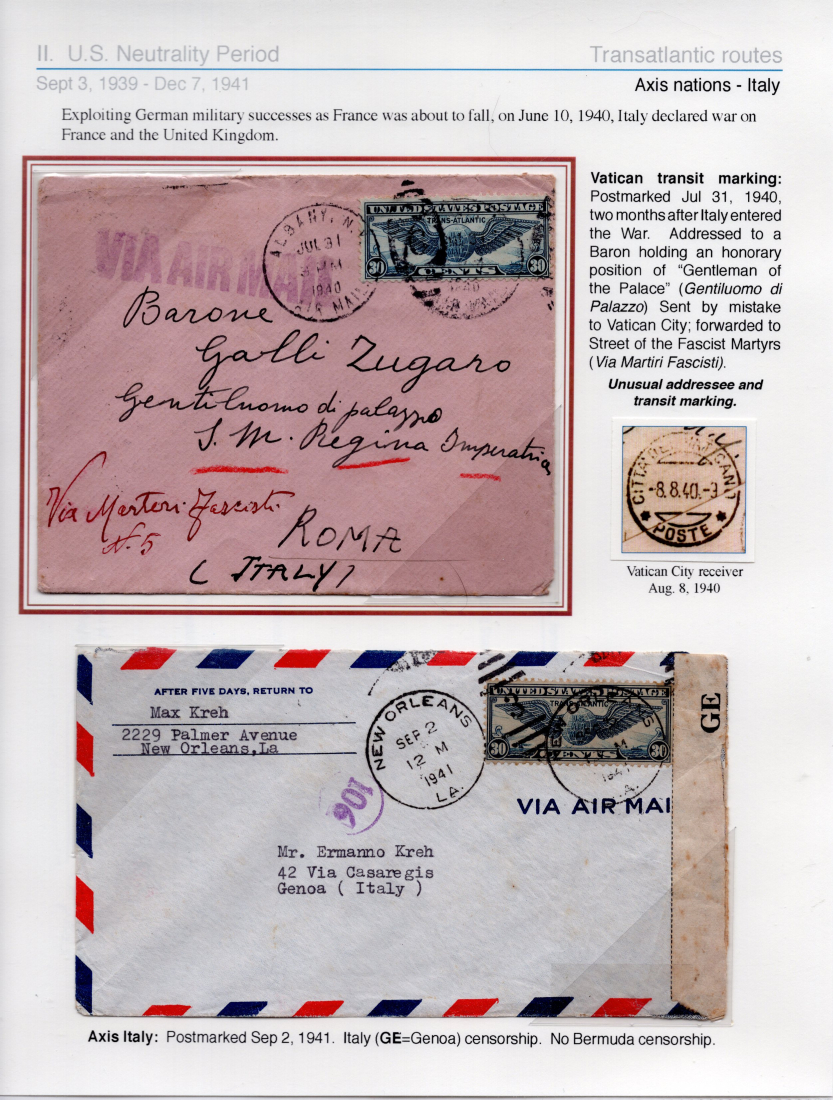 II. U.S. Neutrality Period
Transatlantic routes
Sept 3, 1939 - Dec 7, 1941
Axis nations - Italy
Exploiting German military successes as France was about to fall, on June 10, 1940, Italy declared war on
France and the United Kingdom.
VIA AIR MAIL
ALBANY, N.
JUL 31
M
1940
UNITED STATES POSTAGE
TRANS-ATLANTIC
30 CENTS 30
1940
Barone
Galli Zugaro
Gentiluomo di palazzo
S. M. Regina Imperatria
Via Marteri Fascisti
N. 5
ROMA
( ITALY )
Vatican transit marking:
Postmarked Jul 31, 1940,
two months after Italy entered
the War. Addressed to a
Baron holding an honorary
position of “Gentleman of
the Palace” (Gentiluomo di
Palazzo) Sent by mistake
to Vatican City; forwarded to
Street of the Fascist Martyrs
(Via Martiri Fascisti).
Unusual addressee and
transit marking.
CITTA DEL VATICANO
-8.8.40.-3
* POSTE *
Vatican City receiver
Aug. 8, 1940
AFTER FIVE DAYS, RETURN TO
Max Kreh
2229 Palmer Avenue
New Orleans,La
NEW ORLEANS
SEP 2
12 M
1941
LA.
UNITED STATES POSTAGE
TRANS-ATLANTIC
30 CENTS 30
GE
106
VIA AIR MAI
Mr. Ermanno Kreh
42 Via Casaregis
Genoa ( Italy )
Axis Italy: Postmarked Sep 2, 1941. Italy (GE=Genoa) censorship. No Bermuda censorship.